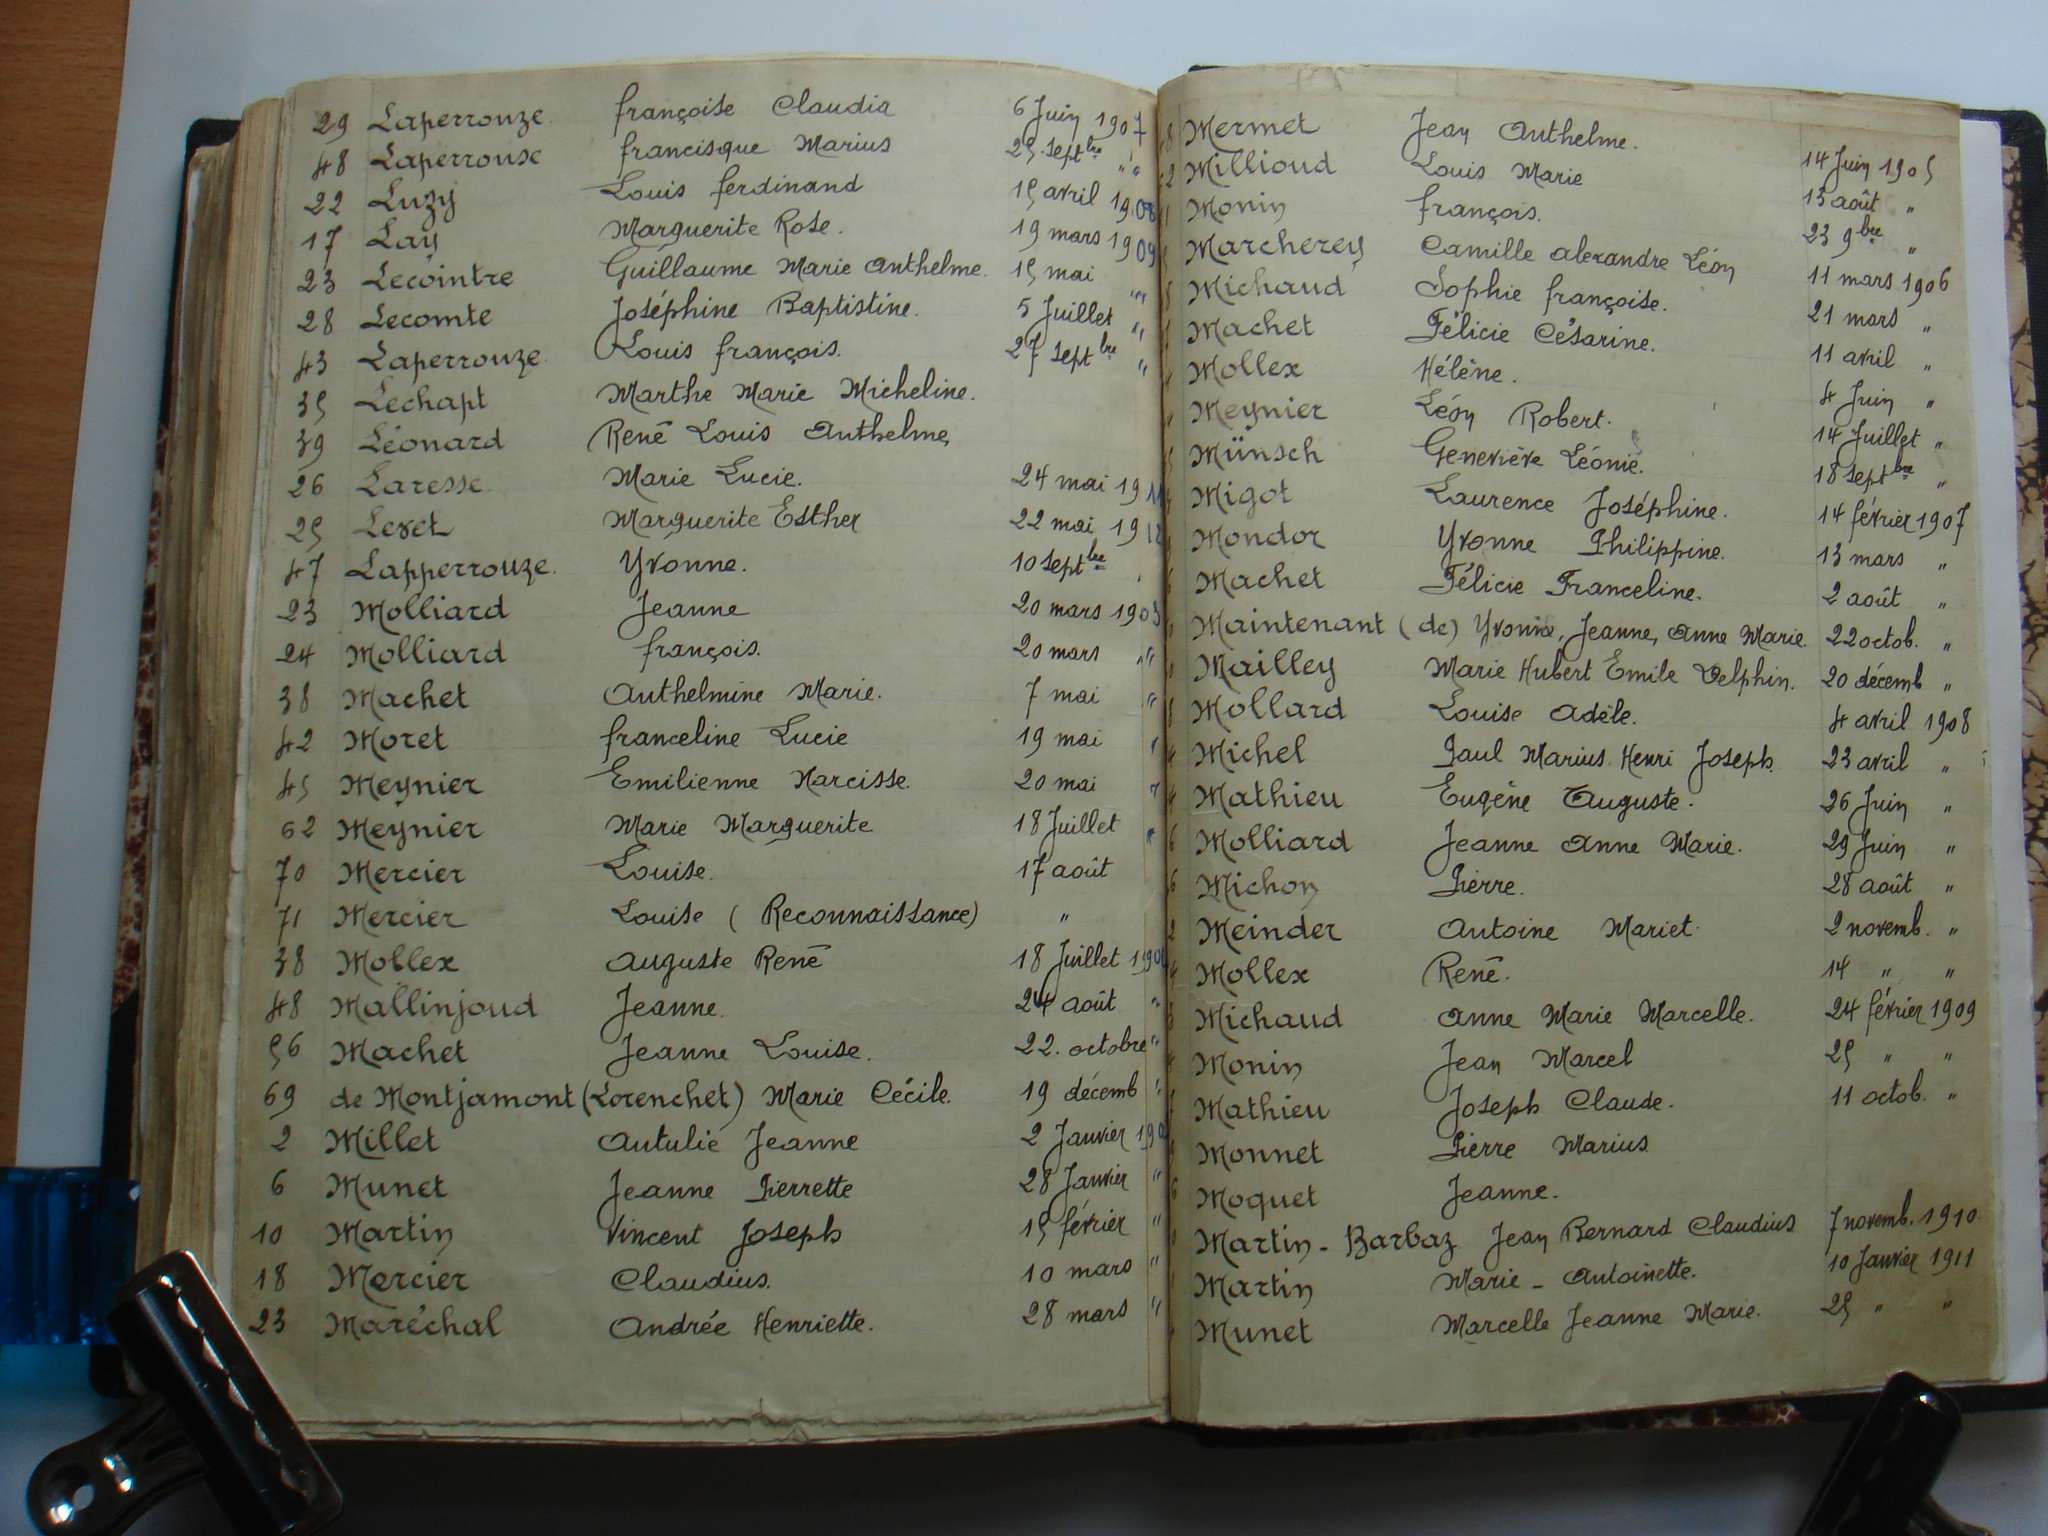 29 Laperrouze françoise Claudia 6 Juin 1907
48 Laperrouse francisque Marius 25 Septbre "
22 Luzy Louis ferdinand 15 avril 1908
17 Lay Marguerite Rose. 19 mars 1909
23 Lecointre Guillaume Marie Anthelme. 15 mai "
28 Lecomte Joséphine Baptistine. 5 Juillet "
43 Laperrouze. Louis françois. 27 Septbre "
35 Lechapt Marthe Marie Micheline.
39 Léonard René Louis Anthelme
26 Laresse Marie Lucie. 24 mai 1911
25 Levet Marguerite Esther 22 mai 1912
47 Lapperrouze. Yvonne. 10 Septbre "
23 Molliard Jeanne 20 mars 1903
24 Molliard françois. 20 mars "
38 Machet Anthelmine Marie. 7 mai "
42 Moret franceline Lucie 19 mai "
45 Meynier Emilienne Narcisse. 20 mai "
62 Meynier Marie Marguerite 18 Juillet "
70 Mercier Louise. 17 août
71 Mercier Louise (Reconnaissance) "
38 Mollex Auguste René 18 Juillet
48 Mallinjoud Jeanne. 24 août "
56 Machet Jeanne Louise. 22. octobre "
69 de Montjamont (Lorenchet) Marie Cécile. 19 décemb "
2 Millet Antulie Jeanne 2 Janvier
6 Munet Jeanne Pierrette 28 Janvier "
10 Martin Vincent Joseph 15 février "
18 Mercier Claudius. 10 mars "
23 Maréchal Andrée Henriette. 28 mars "
Mermet Jean Anthelme. 14 Juin 1905
Millioud Louis Marie 13 août "
Monin françois. 23 9bre "
Marcherey Camille Alexandre Léon 11 mars 1906
Michaud Sophie françoise. 21 mars "
Machet Félicie Césarine. 11 avril "
Mollex Hélène. 4 Juin "
Meynier Léon Robert. 14 Juillet "
Münsch Geneviève Léonie. 18 Septbre "
Migot Laurence Joséphine. 14 février 1907
Mondor Yvonne Philippine. 13 mars "
Machet Félicie Franceline. 2 août "
Maintenant (de) Yvonne, Jeanne, Anne Marie. 22 octob. "
Mailley Marie Hubert Emile Delphin. 20 décemb "
Mollard Louise Adèle. 4 avril 1908
Michel Paul Marius Henri Joseph 23 avril "
Mathieu Eugène Auguste. 26 Juin "
Molliard Jeanne Anne Marie. 29 Juin "
Michon Pierre. 28 août "
Meinder Antoine Mariet. 2 novemb. "
Mollex René. 14 " "
Michaud Anne Marie Marcelle. 24 février 1909
Monin Jean Marcel 25 " "
Mathieu Joseph Claude. 11 octob. "
Monnet Pierre Marius
Moquet Jeanne.
Martin - Barbaz Jean Bernard Claudius 7 novemb. 1910
Martin Marie - Antoinette. 10 Janvier 1911
Munet Marcelle Jeanne Marie. 25 " "